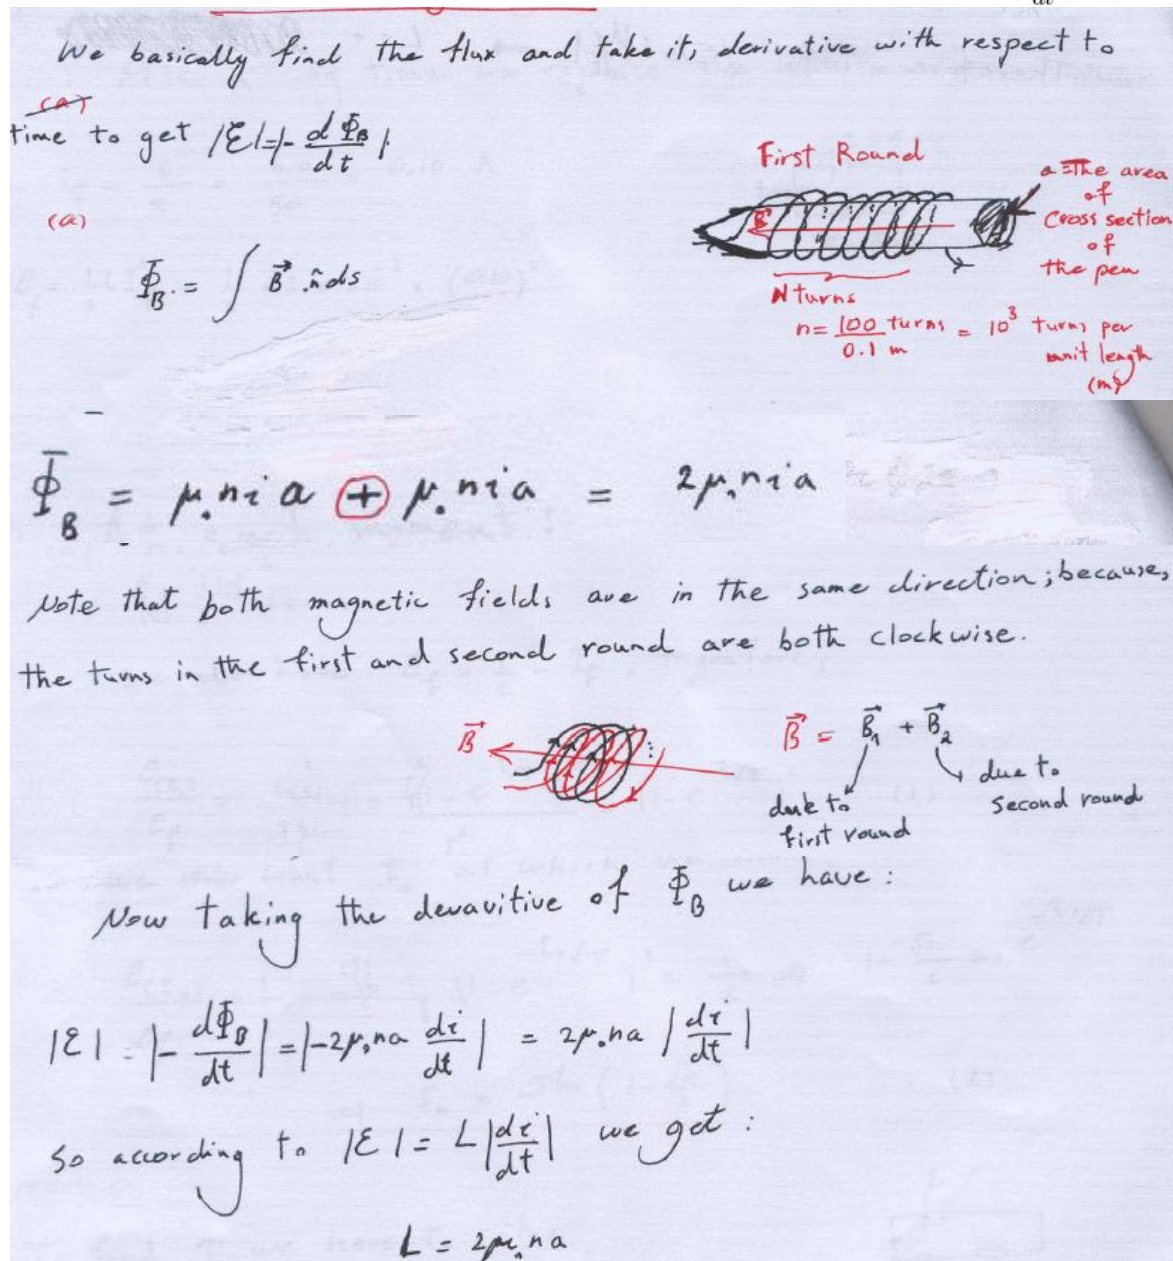 dt
We basically find the flux and take it, derivative with respect to
(a)
time to get |ℰ|=|- dΦ_B/dt|
First Round
a = The area
of
Cross section
of
the pen
B⃗
N turns
n = 100 turns / 0.1 m = 10³ turns per
unit length
(m)
(a)
Φ_B = ∫ B⃗ . n̂ ds
Φ_B = μ₀nia + μ₀nia = 2μ₀nia
Note that both magnetic fields are in the same direction; because,
the turns in the first and second round are both clockwise.
B⃗
B⃗ = B⃗₁ + B⃗₂
due to
first round
due to
second round
Now taking the devavitive of Φ_B we have :
|ℰ| = |- dΦ_B/dt| = |-2μ₀na di/dt| = 2μ₀na |di/dt|
So according to |ℰ| = L|di/dt| we get :
L = 2μ₀na